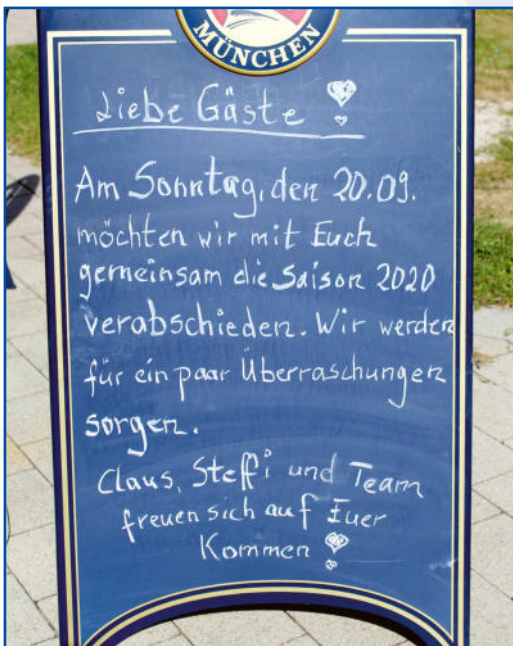 MÜNCHEN
Liebe Gäste !
Am Sonntag, den 20.09.
möchten wir mit Euch
gemeinsam die Saison 2020
verabschieden. Wir werden
für ein paar Überraschungen
sorgen.
Claus, Steffi und Team
freuen sich auf Euer
Kommen !